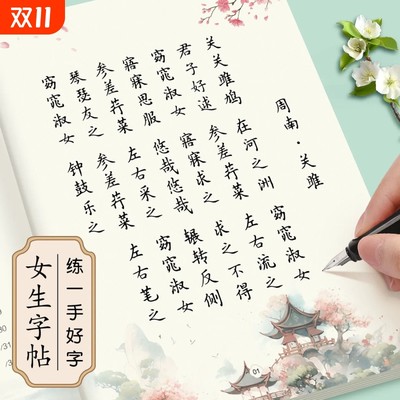 双11
周南·关雎
关关雎鸠 在河之洲 窈窕淑女
君子好逑 参差荇菜 左右流之
窈窕淑女 寤寐求之 求之不得
寤寐思服 悠哉悠哉 辗转反侧
参差荇菜 左右采之 窈窕淑女
琴瑟友之 参差荇菜 左右笔之
窈窕淑女 钟鼓乐之
练一手好字
女生字帖
01